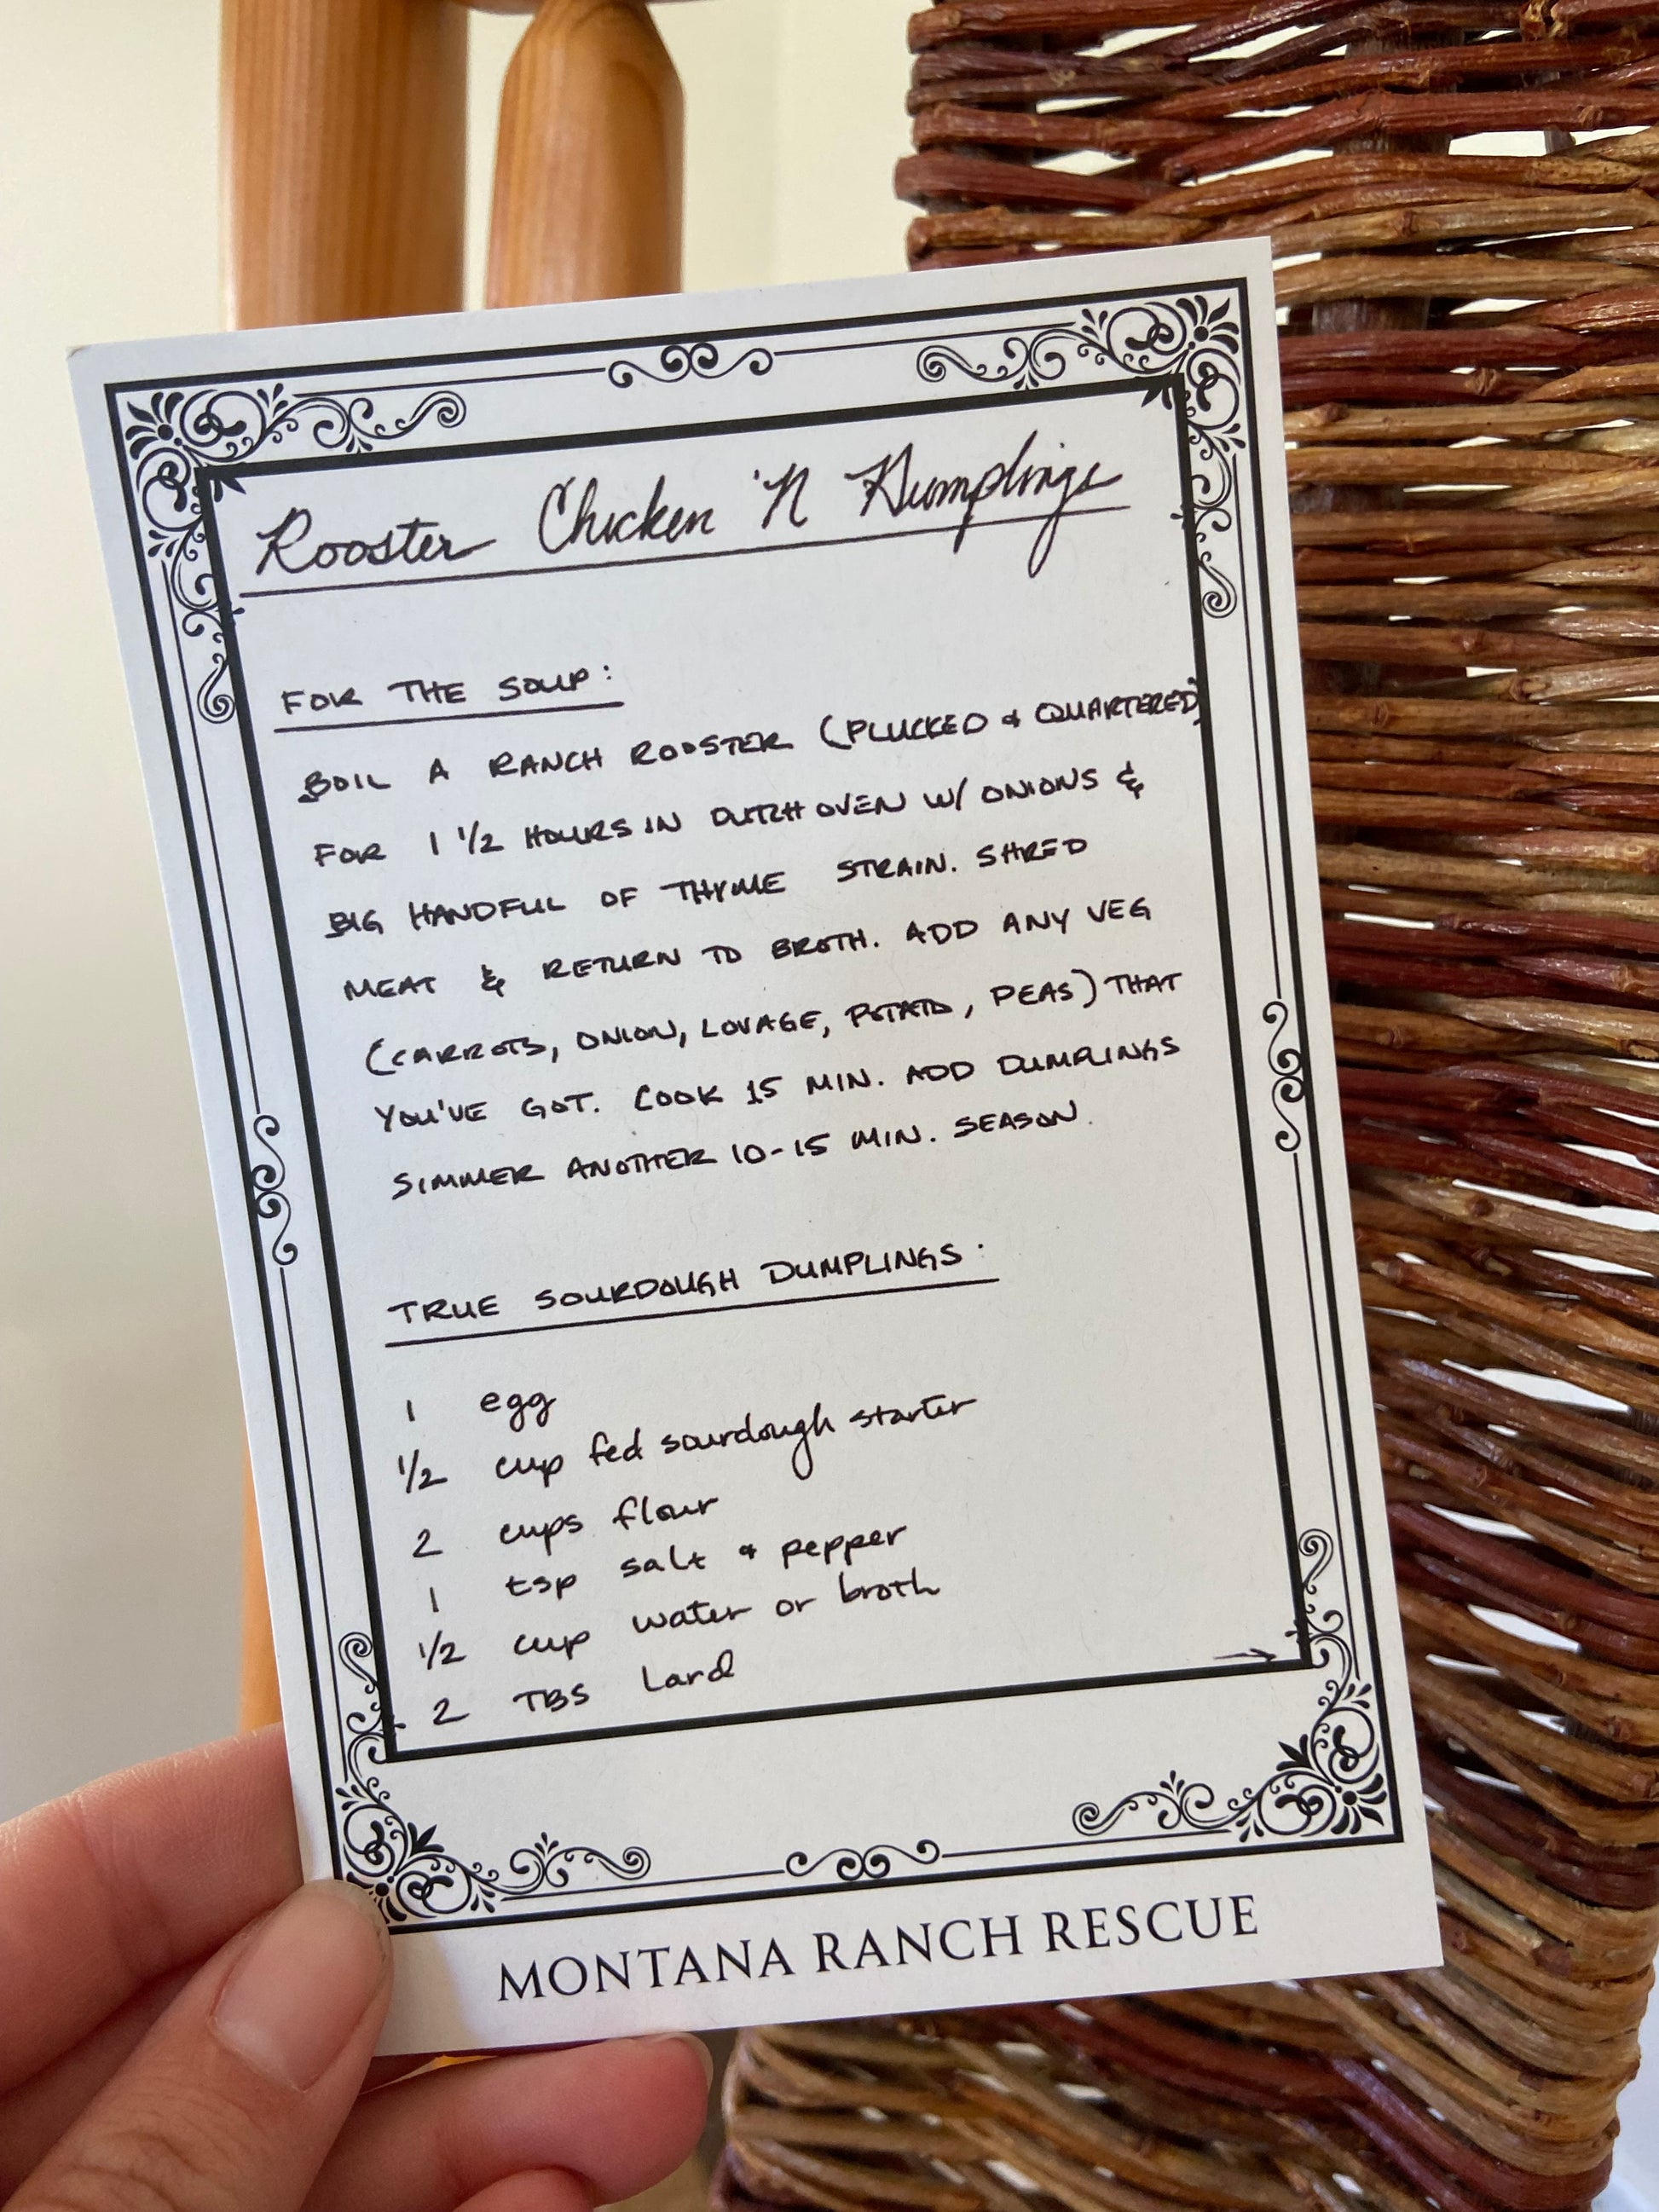 Rooster Chicken 'N Dumplings
FOR THE SOUP:
BOIL A RANCH ROOSTER (PLUCKED & QUARTERED)
FOR 1 1/2 HOURS IN DUTCH OVEN W/ ONIONS &
BIG HANDFUL OF THYME STRAIN. SHRED
MEAT & RETURN TO BROTH. ADD ANY VEG
(CARROTS, ONION, LOVAGE, POTATO, PEAS) THAT
YOU'VE GOT. COOK 15 MIN. ADD DUMPLINGS
SIMMER ANOTHER 10-15 MIN. SEASON.
TRUE SOURDOUGH DUMPLINGS:
1 egg
1/2 cup fed sourdough starter
2 cups flour
1 tsp salt & pepper
1/2 cup water or broth
2 TBS Lard →
MONTANA RANCH RESCUE